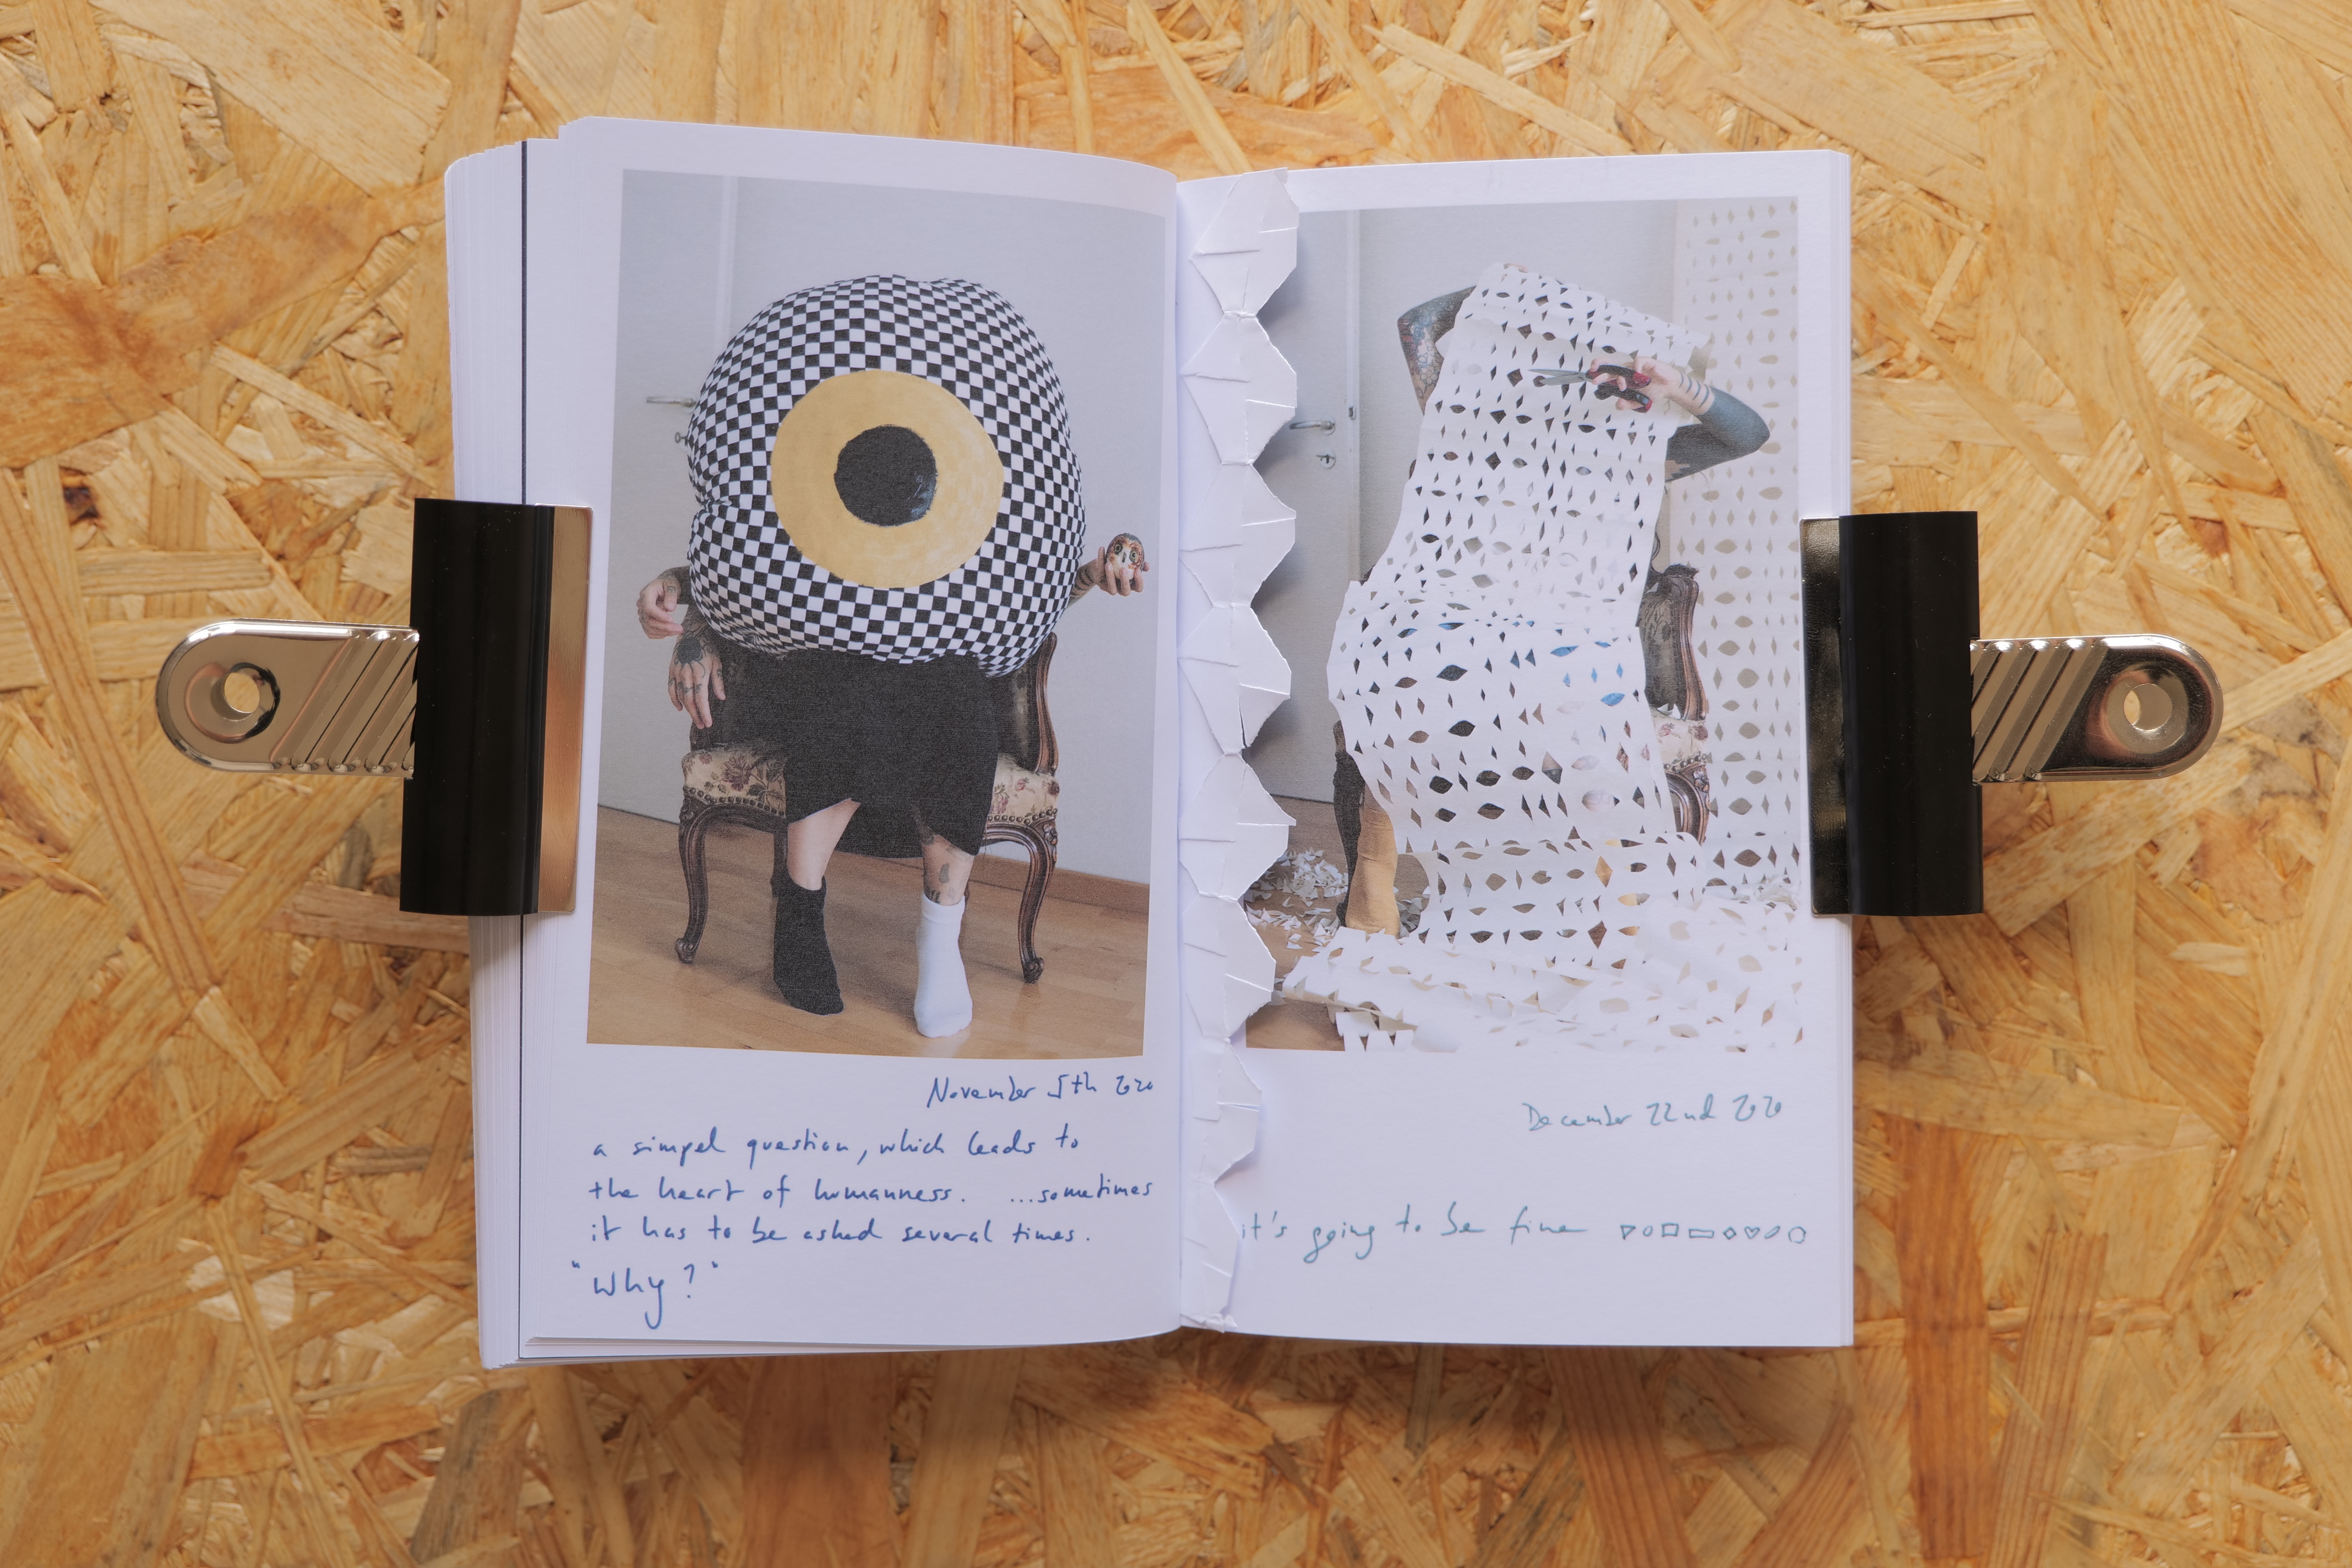 November 5th 2020
a simpel question, which leads to
the heart of humanness. ...sometimes
it has to be asked several times.
"Why?"
December 22nd 2020
it's going to be fine